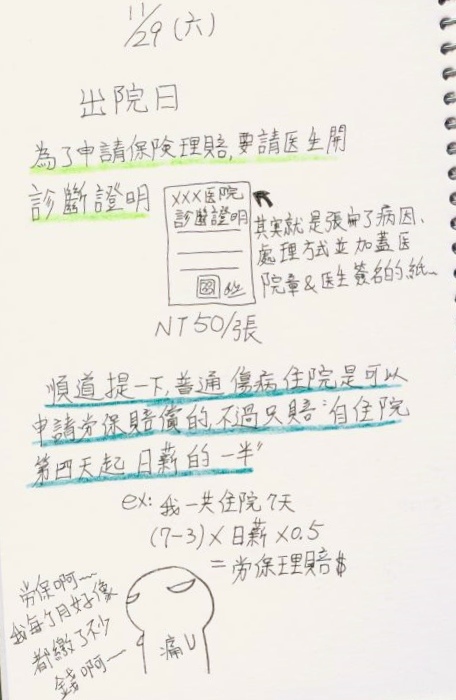 11/29(六)
出院日
為了申請保険理賠,要請医生開
診斷證明
XXX医院
診斷證明
其実就是張寫了病因、
處理方式並加蓋医
院章&医生簽名的紙~
NT50/張
順道提一下,普通傷病住院是可以
申請労保賠償的,不過只賠"自住院
第四天起日薪的一半"
ex: 我一共住院7天
(7-3)×日薪×0.5
=労保理賠$
労保啊~~
我每个月好像
都繳了不少
錢啊~~
痛